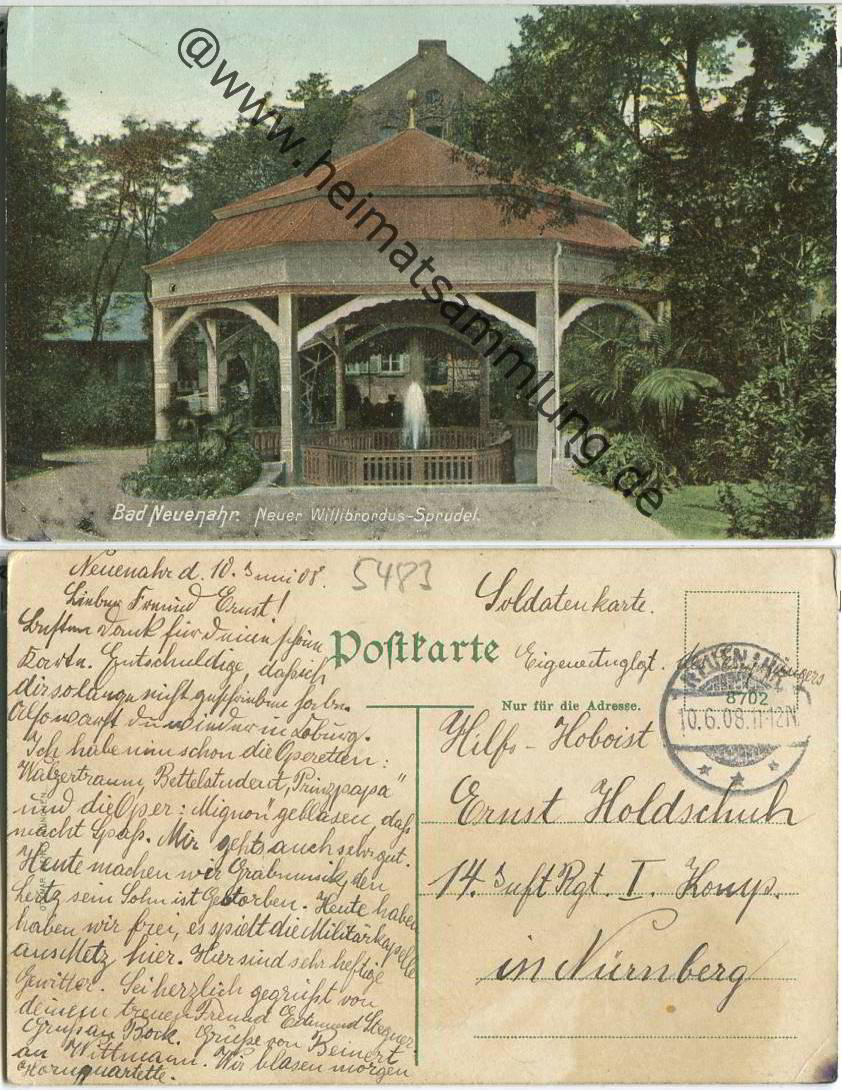 @www.heimatsammlung.de
Bad Neuenahr. Neuer Willibrordus-Sprudel.
Neuenahr d. 10. Juni 08.
5483
Lieber Freund Ernst!
Besten Dank für deine schöne
Karte. Entschuldige, daß ich
dir so lange nicht geschrieben habe.
Also warst du wieder in Coburg.
Ich habe nun schon die Operetten:
Walzertraum, Bettelstudent, Prinzpapa"
und die Oper: Mignon" geblasen, das
macht Spaß. Mir gehts auch sehr gut.
Heute machen wir Grabmusik, den
sein Sohn ist Gestorben. Heute haben
haben wir frei, es spielt die Militärkapelle
aus Metz hier. Hier sind sehr heftige
Gewitter. Sei herzlich gegrüßt von
deinem treuen Freund Edmund
Gruß an Bock. Grüße von Beinert
an Wittmann. Wir blasen morgen
Hornquartette.
Soldatenkarte.
Postkarte
Eigene Anglgt. des
Nur für die Adresse.
NEUENAHR
8702
10.6.08.11-12N.
Hilfs-Hoboist
Ernst Holdschuh
14. Inft Rgt. I. Komp.
in Nürnberg